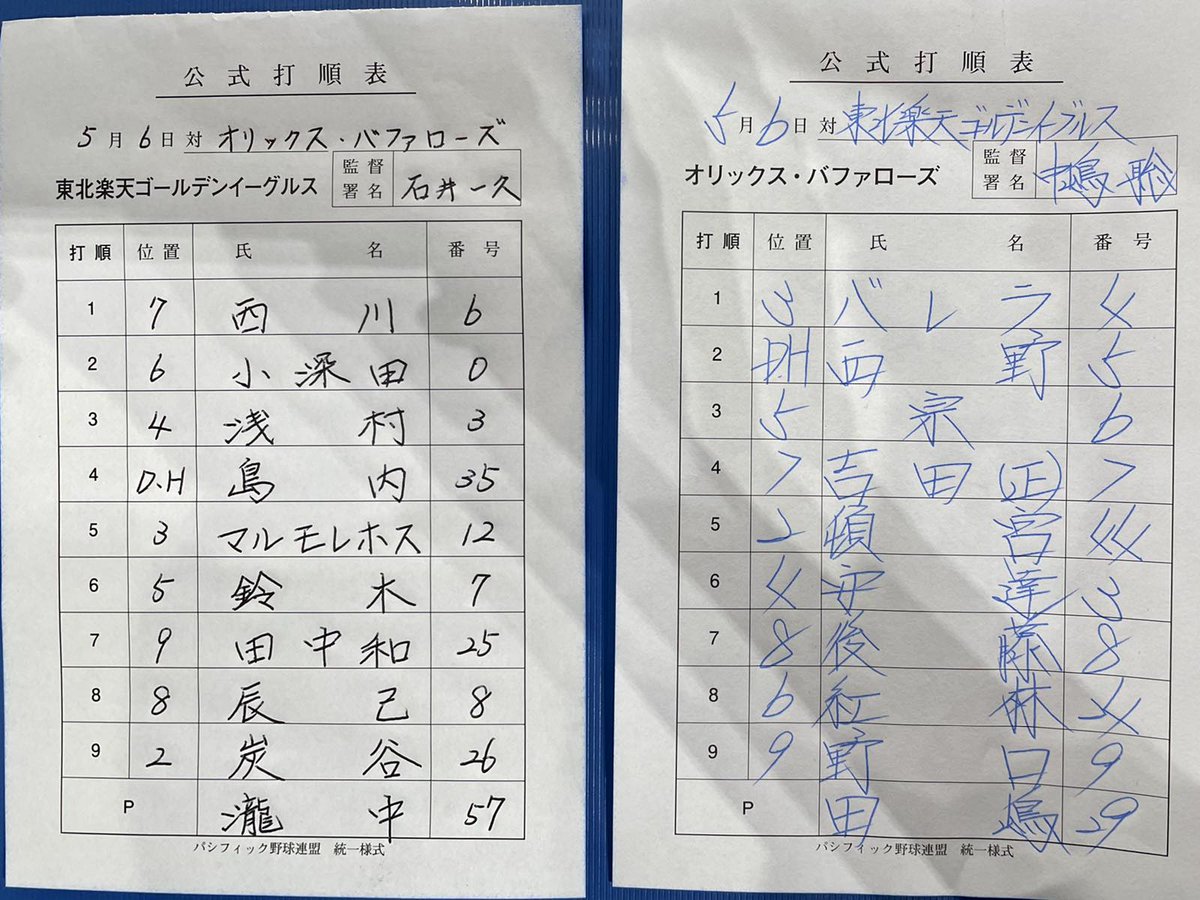 公式打順表
5月6日対 オリックス・バファローズ
東北楽天ゴールデンイーグルス 監督署名 石井一久
打順 位置 氏名 番号
1 7 西川 6
2 6 小深田 0
3 4 浅村 3
4 D.H 島内 35
5 3 マルモレホス 12
6 5 鈴木 7
7 9 田中和 25
8 8 辰己 8
9 2 炭谷 26
P 瀧中 57
パシフィック野球連盟 統一様式
公式打順表
5月6日対 東北楽天ゴールデンイーグルス
オリックス・バファローズ 監督署名 中嶋聡
打順 位置 氏名 番号
1 3 バレラ 4
2 DH 西野 5
3 5 宗 6
4 7 吉田(正) 7
5 2 頓宮 44
6 4 安達 3
7 8 後藤 8
8 6 紅林 24
9 9 野口 9
P 田嶋 29
パシフィック野球連盟 統一様式